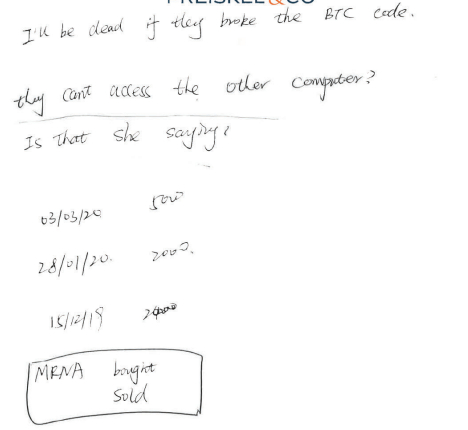 PREISKEL&CO
I'll be dead if they broke the BTC code.
they cant access the other computer?
Is that she saying?
03/03/20 5000
28/01/20. 2000.
15/12/19
MRNA bought
sold